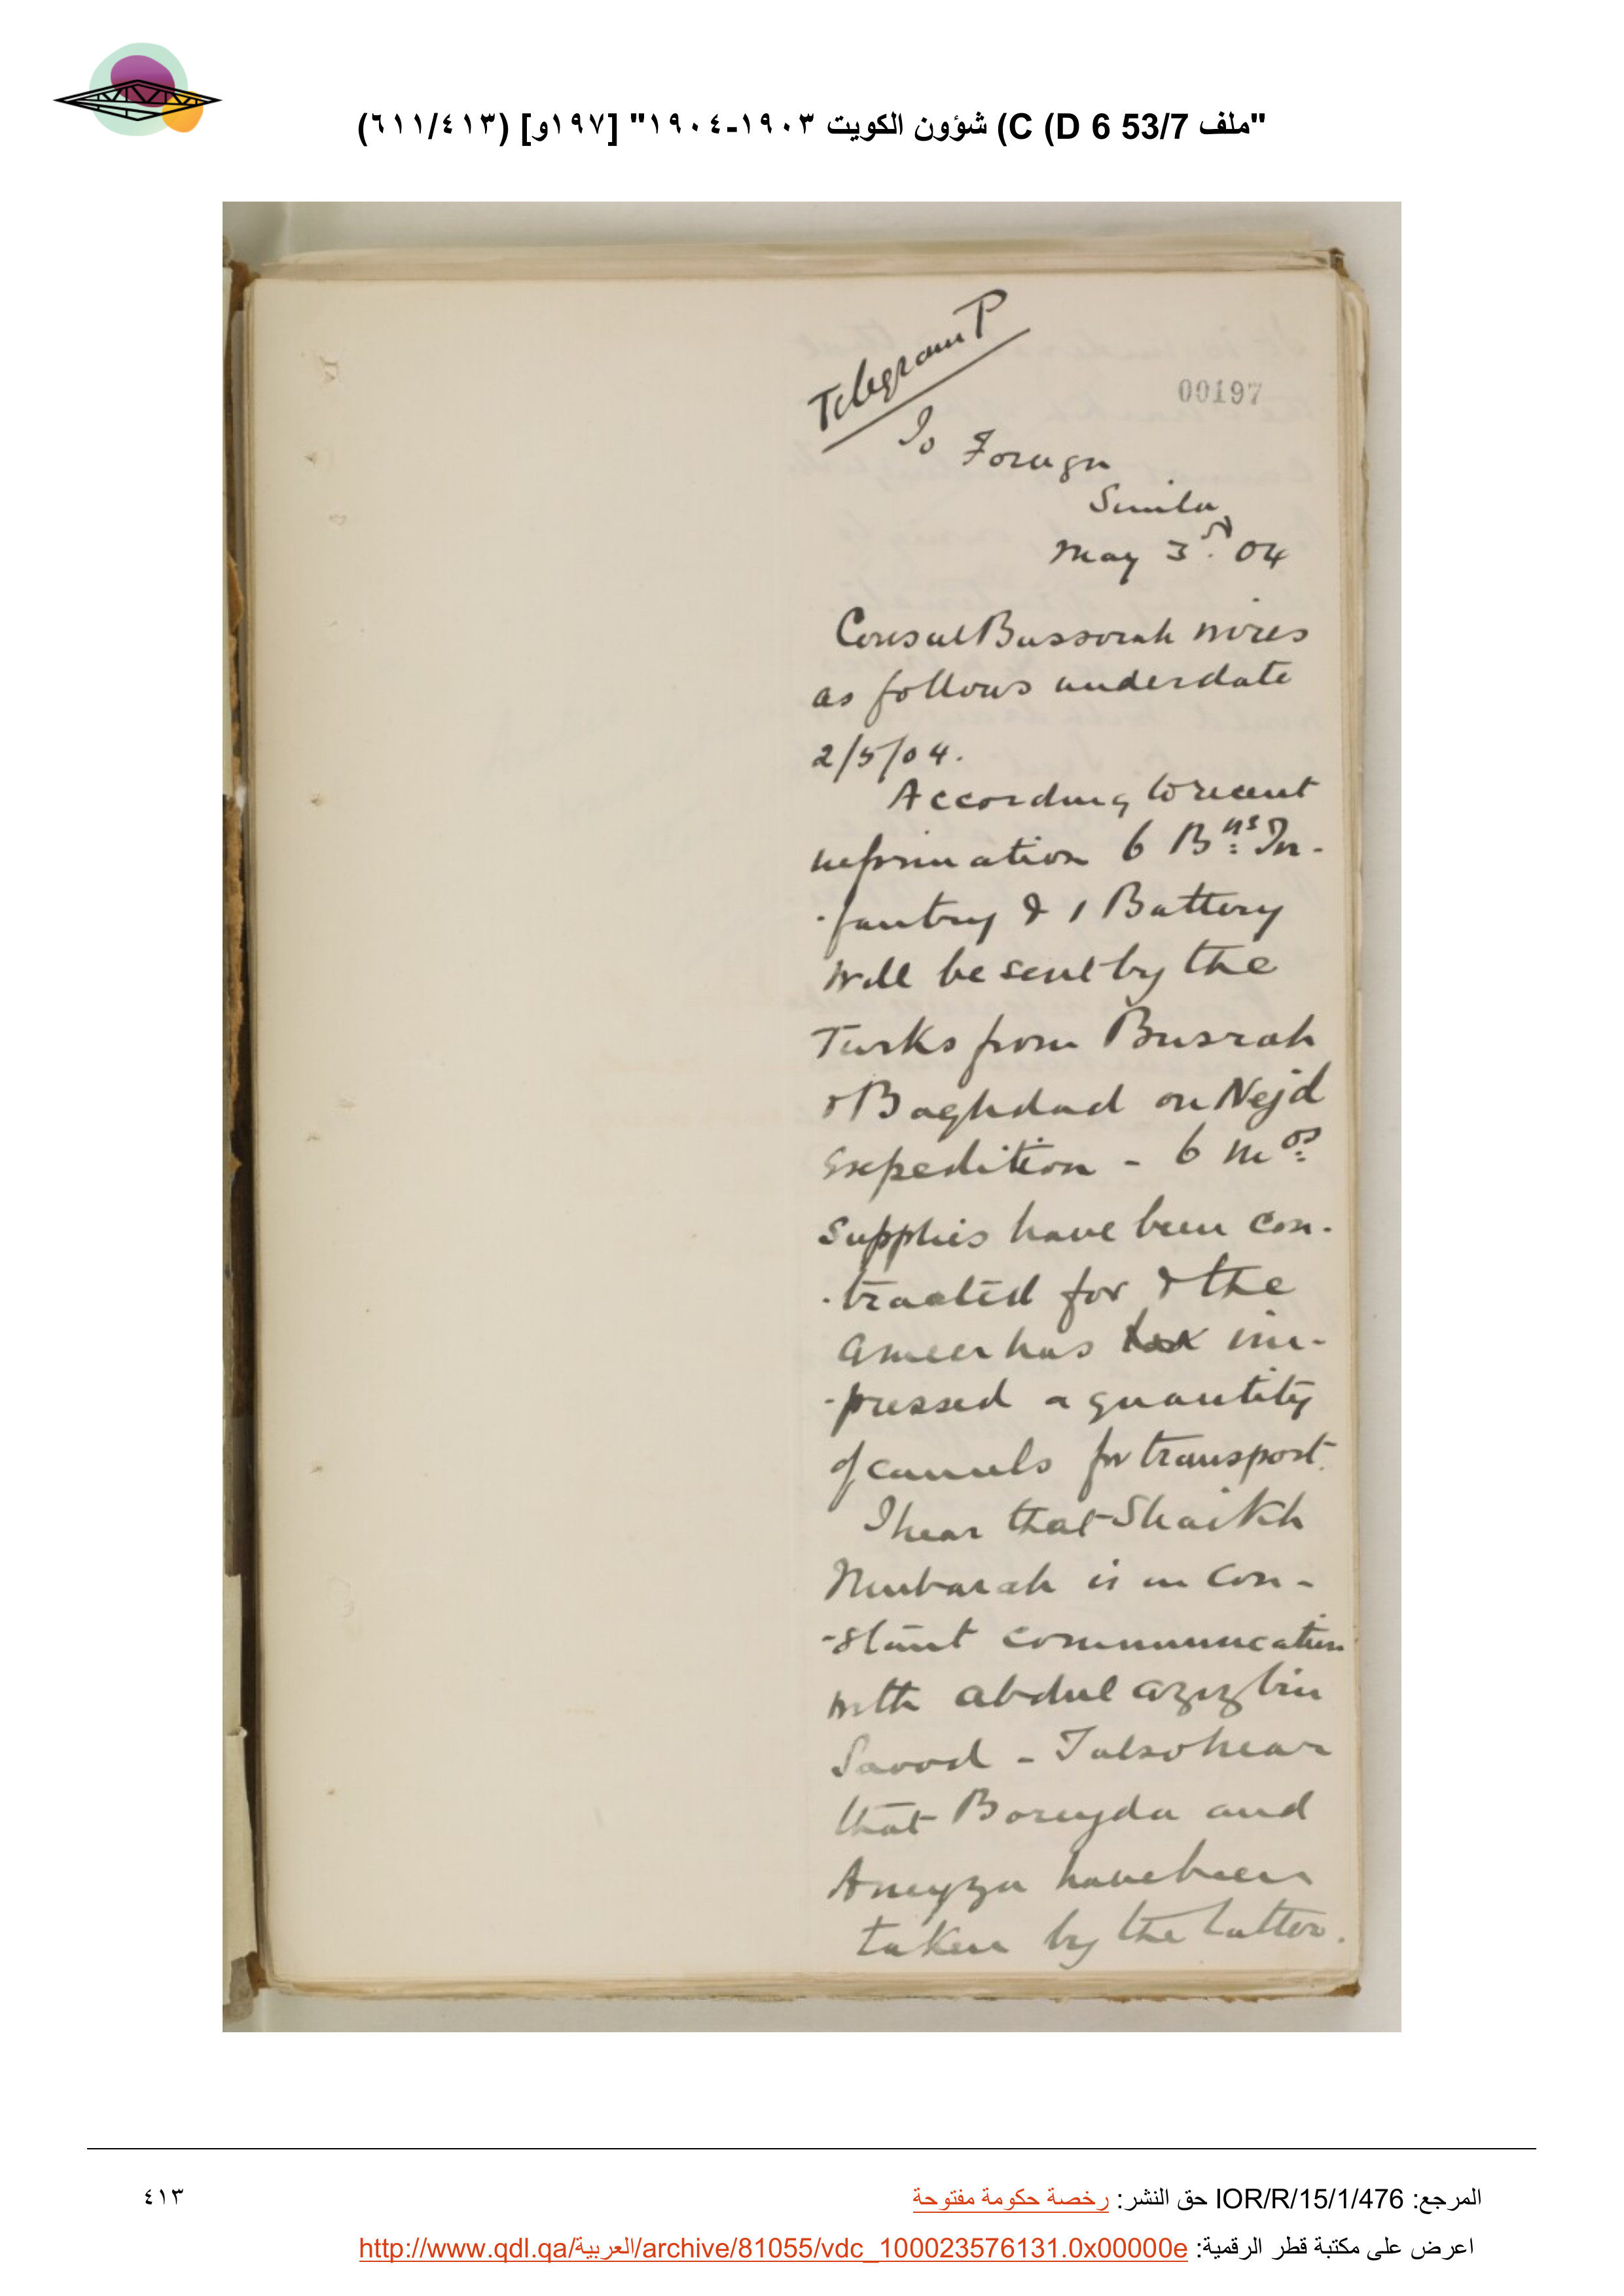 "ملف 53/7 C (D 6) شؤون الكويت ١٩٠٣-١٩٠٤" [١٩٧و] (٦١١/٤١٣)
Telegram P
00197
To Foreign
Simla
May 3rd. 04
Consul Bussorah wires
as follows under date
2/5/04.
According to recent
information 6 Bns: In-
-fantry & 1 Battery
will be sent by the
Turks from Busrah
& Baghdad on Nejd
Expedition - 6 mos:
supplies have been con-
-tracted for & the
Ameer has im-
-pressed a quantity
of camels for transport.
I hear that Shaikh
Mubarak is in con-
-stant communication
with Abdul Aziz bin
Saood - I also hear
that Boreyda and
Aneyza have been
taken by the latter.
المرجع: IOR/R/15/1/476 حق النشر: رخصة حكومة مفتوحة
٤١٣
اعرض على مكتبة قطر الرقمية: http://www.qdl.qa/العربية/archive/81055/vdc_100023576131.0x00000e